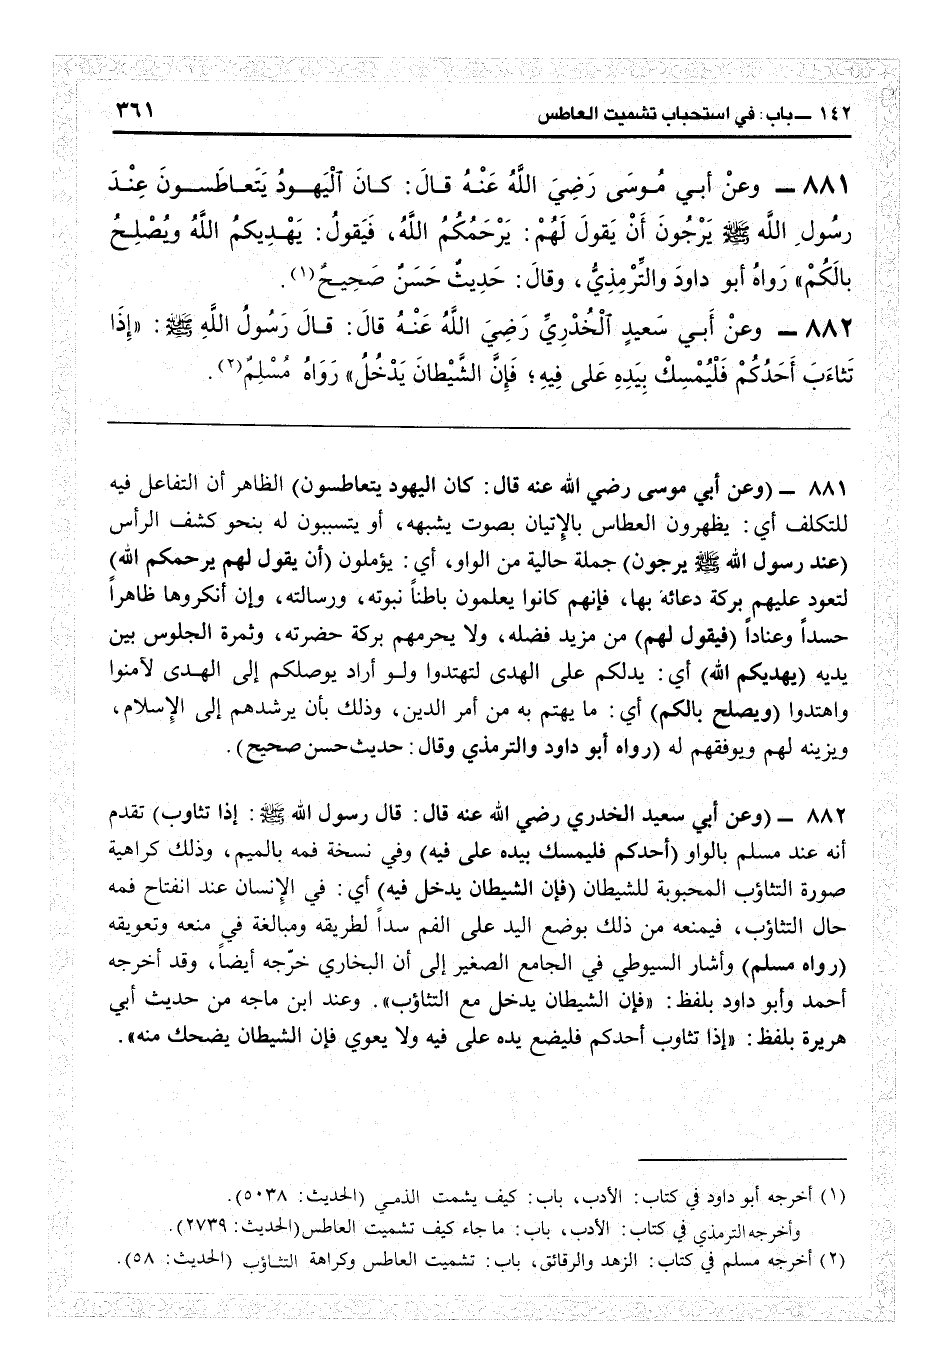 ١٤٢ ــ باب: في استحباب تشميت العاطس ٣٦١
٨٨١ ــ وعنْ أبـي مُـوسَى رَضِيَ اللَّهُ عَنْـهُ قـالَ: كـانَ ٱلْيَهـودُ يَتَعـاطَسـونَ عِنْـدَ
رسُولِ اللَّه ﷺ يَرْجُونَ أَنْ يَقولَ لَهُمْ: يَرْحَمُكُمُ اللَّهُ، فَيَقولُ: يَهْدِيكمُ اللَّهُ ويُصْلِـحُ
بالَكُمْ» رَواهُ أبو داودَ والتِّرْمِذِيُّ، وقالَ: حَدِيثٌ حَسَنٌ صَحِيحٌ(١).
٨٨٢ ــ وعنْ أَبـي سَعيدٍ ٱلْخُدْرِيِّ رَضِيَ اللَّهُ عَنْـهُ قالَ: قـالَ رَسُولُ اللَّهِ ﷺ: «إِذَا
تَثاءَبَ أَحَدُكُمْ فَلْيُمْسِكْ بِيَدِهِ عَلى فِيهِ؛ فَإِنَّ الشَّيْطانَ يَدْخُلُ» رَوَاهُ مُسْلِمٌ(٢).
٨٨١ ــ (وعن أبي موسى رضي الله عنه قال: كان اليهود يتعاطسون) الظاهر أن التفاعل فيه
للتكلف أي: يظهرون العطاس بالإتيان بصوت يشبهه، أو يتسببون له بنحو كشف الرأس
(عند رسول الله ﷺ يرجون) جملة حالية من الواو، أي: يؤملون (أن يقول لهم يرحمكم الله)
لتعود عليهم بركة دعائه بها، فإنهم كانوا يعلمون باطناً نبوته، ورسالته، وإن أنكروها ظاهراً
حسداً وعناداً (فيقول لهم) من مزيد فضله، ولا يحرمهم بركة حضرته، وثمرة الجلوس بين
يديه (يهديكم الله) أي: يدلكم على الهدى لتهتدوا ولـو أراد يوصلكم إلى الهـدى لآمنوا
واهتدوا (ويصلح بالكم) أي: ما يهتم به من أمر الدين، وذلك بأن يرشدهم إلى الإسلام،
ويزينه لهم ويوفقهم له (رواه أبو داود والترمذي وقال: حديث حسن صحيح).
٨٨٢ ــ (وعن أبي سعيد الخدري رضي الله عنه قال: قال رسول الله ﷺ: إذا تثاوب) تقدم
أنه عند مسلم بالواو (أحدكم فليمسك بيده على فيه) وفي نسخة فمه بالميم، وذلك كراهية
صورة التثاؤب المحبوبة للشيطان (فإن الشيطان يدخل فيه) أي: في الإنسان عند انفتاح فمه
حال التثاؤب، فيمنعه من ذلك بوضع اليد على الفم سداً لطريقه ومبالغة في منعه وتعويقه
(رواه مسلم) وأشار السيوطي في الجامع الصغير إلى أن البخاري خرّجه أيضاً، وقد أخرجه
أحمد وأبو داود بلفظ: «فإن الشيطان يدخل مع التثاؤب». وعند ابن ماجه من حديث أبي
هريرة بلفظ: «إذا تثاوب أحدكم فليضع يده على فيه ولا يعوي فإن الشيطان يضحك منه».
(١) أخرجه أبو داود في كتاب: الأدب، باب: كيف يشمت الذمـي (الحديث: ٥٠٣٨).
وأخرجه الترمذي في كتاب: الأدب، باب: ما جاء كيف تشميت العاطس (الحديث: ٢٧٣٩).
(٢) أخرجه مسلم في كتاب: الزهد والرقائق، باب: تشميت العاطس وكراهة التثـاؤب (الحديث: ٥٨).